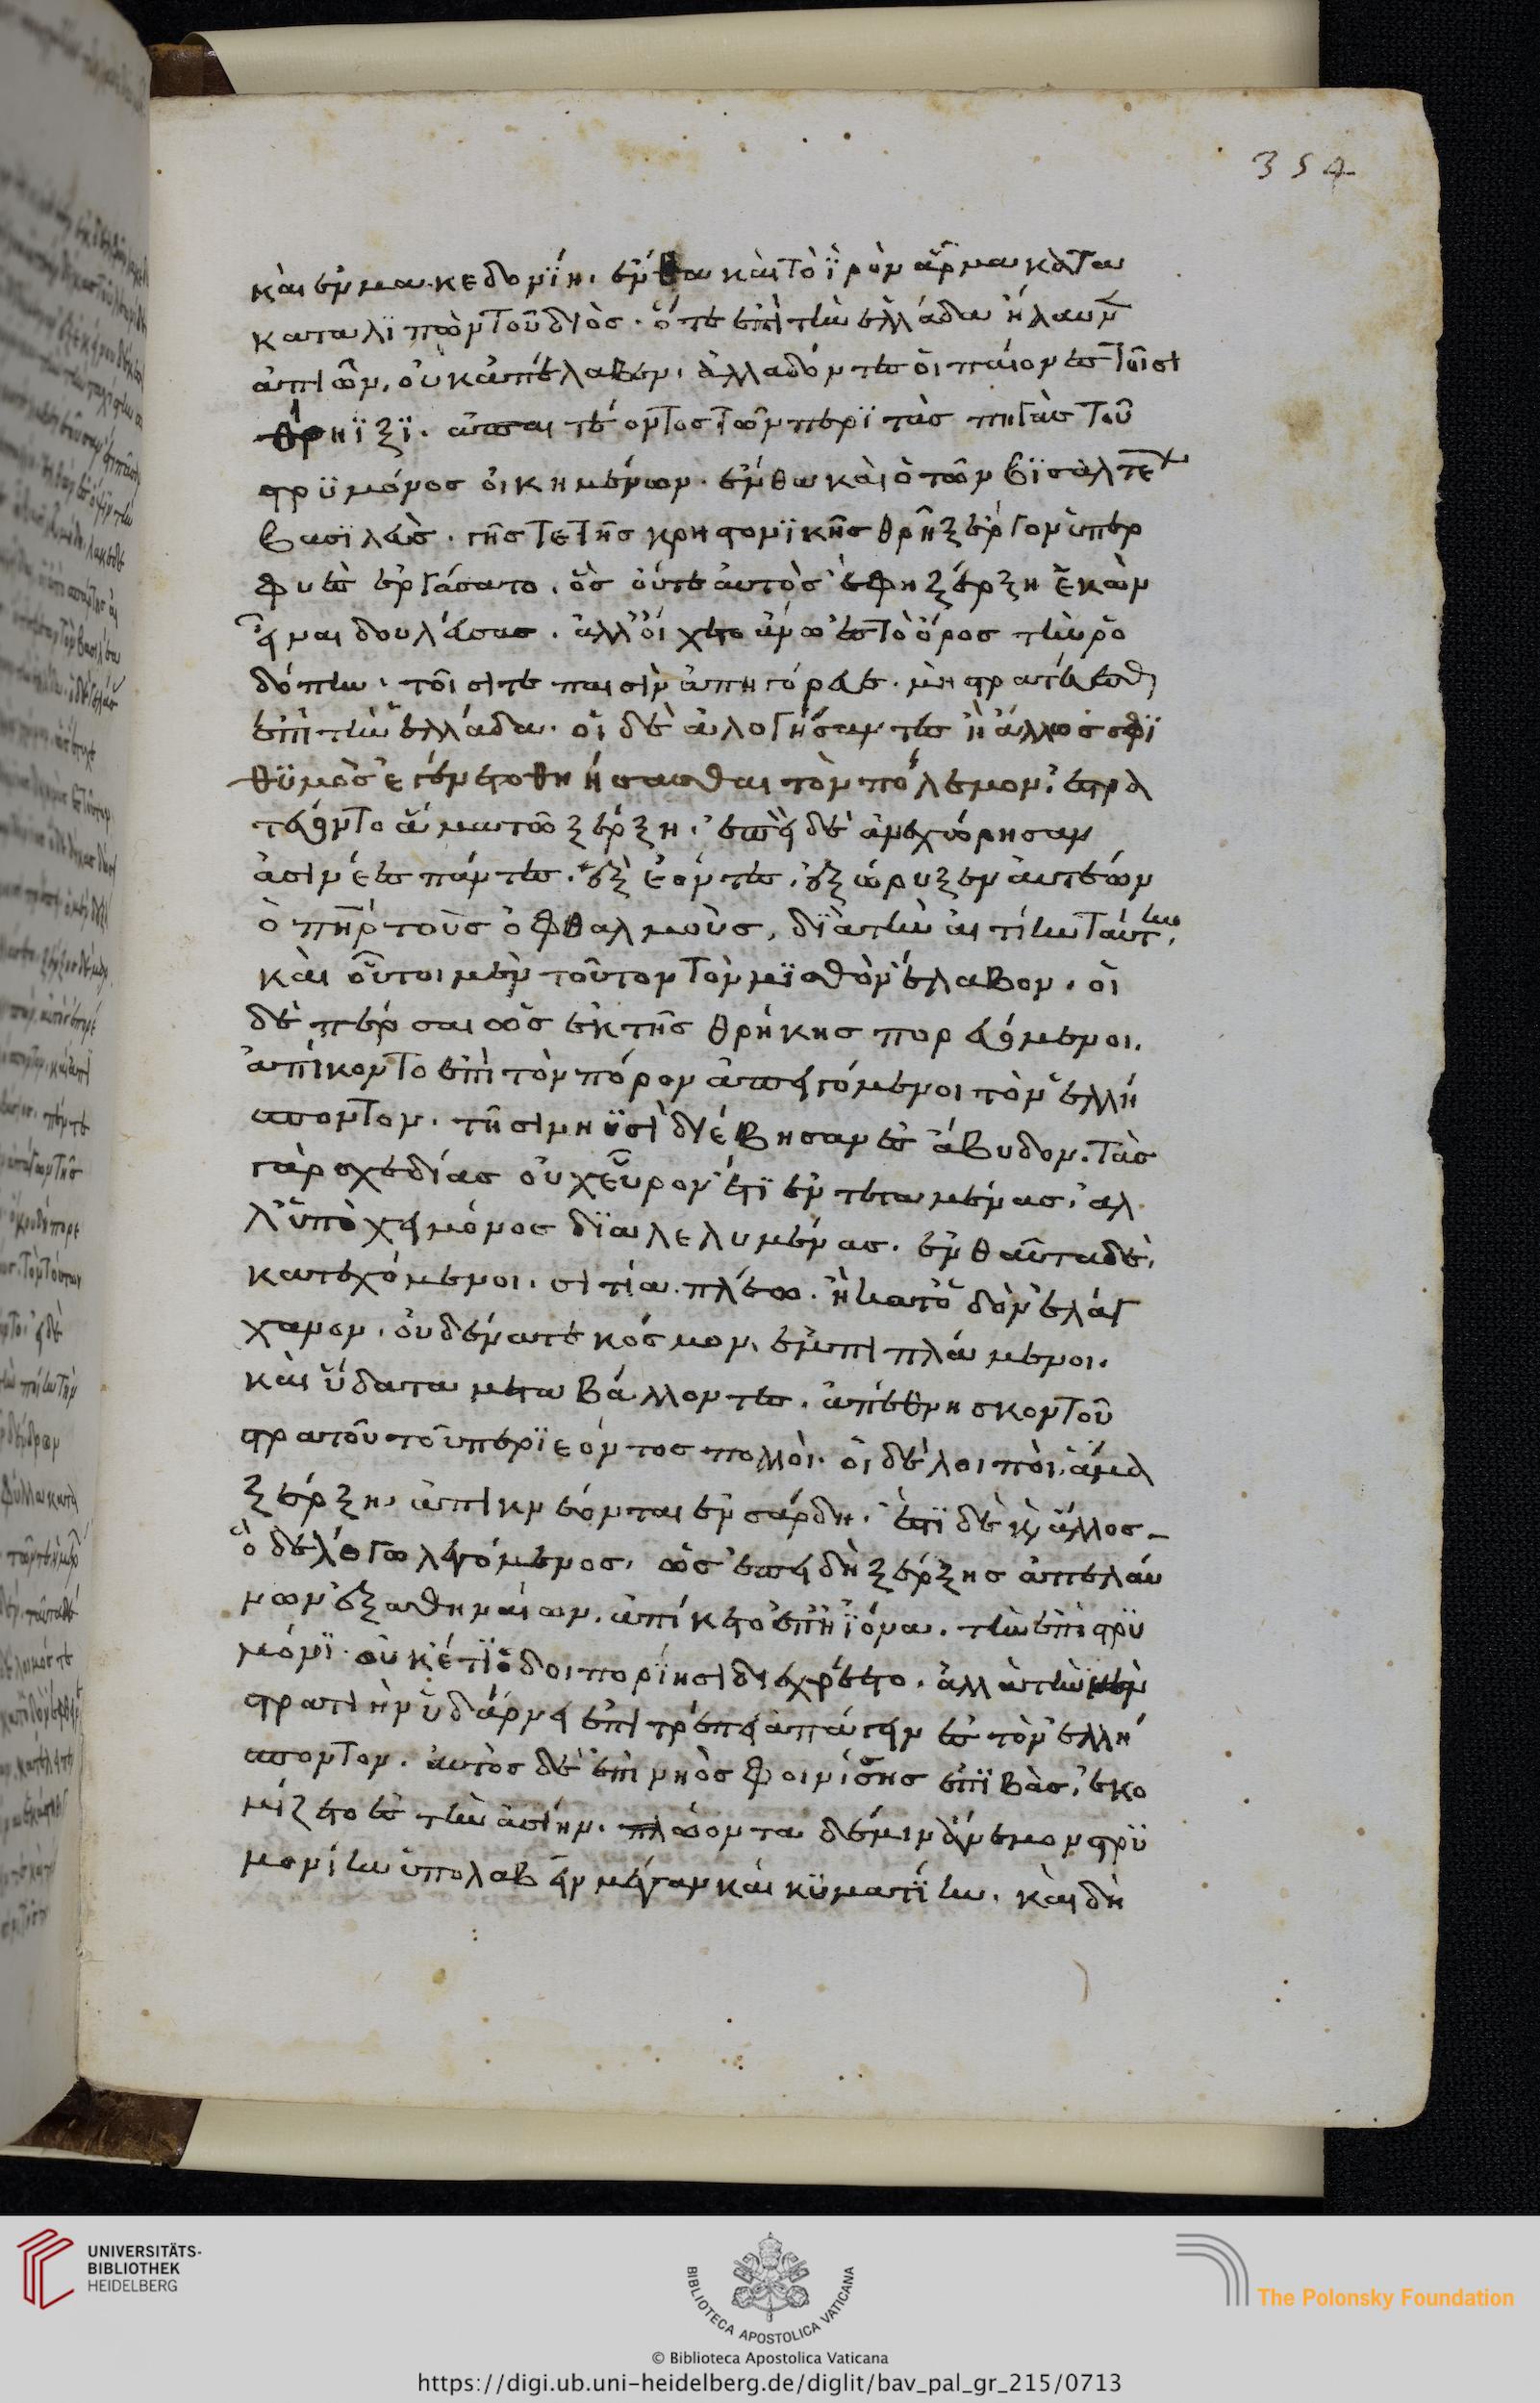 354
καὶ ἐν μακεδονΐη. ἔνθα καὶ τὸ ϊρὸν ἅρμα κατα
καταλϊπὼν τοῦ διὸς. ὅτε ἐπὶ τὴν ἑλλάδα ἤλαυν
ἀπιὼν, οὐκ ἀπέλαβεν. ἀλλὰ δόντες οἱ παίονες τοῖσι
θρήϊξϊ. ἀπαιτέοντος τῶν περὶ τὰς πηγὰς τοῦ
στρϋμόνος οἰκημένων. ἔνθα καὶ ὁ τῶν βϊσαλτέω
βασϊλεὺς. γῆς τε τῆς κρηστονϊκῆς θρῆϊξ ἔργον ὑπερ
φυὲς ἐργάσατο. ὃς οὔτε αὐτὸς ἔφη ξέρξη ἑκὼν
εἶναι δουλεύσας. ἀλλ' οἴχετο ἄνω ἐς τὸ ὄρος τὴν ῥο
δόπην. τοῖσί τε παισὶν ἀπηγόρευε. μὴ στρατεύεσθαι
ἐπὶ τὴν ἑλλάδα. οἱ δὲ ἀλογήσαντες ἢ ἄλλως σφϊ
θϋμὸς ἐγένετο θηήσασθαι τὸν πόλεμον. ἐστρα
τεύοντο ἅμα τῶ ξέρξη. ἐπεὶ δὲ ἀνεχώρησαν
ἀσινέες πάντες. ἓξ ἐόντες. ἐξώρυξεν αὐτέων
ὁ πηρ τοὺς ὀφθαλμοὺς, δϊὰ τὴν αἰτίην ταύτην.
καὶ οὗτοι μὲν τοῦτον τὸν μϊσθὸν ἔλαβον. οἱ
δὲ πέρσαι ὡς ἐκ τῆς θρήκης πορευόμενοι.
ἀπίκοντο ἐπὶ τὸν πόρον ἀπειγόμενοι τὸν ἑλλή
σποντον. τῆσι νηϋσὶ διέβησαν ἐς ἄβυδον. τὰς
γὰρ σχεδίας οὐχ εὗρον ἔτϊ ἐντεταμένας. αλ
λ' ὑπὸ χειμόνος δϊαλελυμένας. ἐνθαῦτα δὲ,
κατεχόμενοι. σιτία πλέω. ἢ κατ' ὁδὸν ἐλάγ
χανον. οὐδένα τε κόσμον. ἐμπιπλάμενοι.
καὶ ὕδατα μεταβάλλοντες. ἀπέθνησκον τοῦ
στρατοῦ τοῦ περϊεόντος πολλοὶ. οἱ δὲ λοιποὶ ἅμα
ξέρξη. ἀπικνέονται ἐν σάρδη. ἔστϊ δὲ καὶ ἄλλος-
ὅδε λόγω λεγόμενος. ὡς ἐπειδὴ ξέρξης ἀπελαύ
νων ἐξ ἀθηναίων. ἀπίκετο ἐπ' ἠϊόνα. τὴν ἐπὶ στρϋ
μόνϊ. οὐκέτϊ ὁδοιπορΐησι διεχρέετο. ἀλλὰ τὴν μὲν
στρατιὴν ὑδάρνει ἐπιτρέπει ἀπάγειν ἐς τὸν ἑλλή
σποντον. αὐτὸς δὲ ἐπὶ νηὸς φοινίσσης ἐπϊβὰς. ἐκο
μίζετο ἐς τὴν ἀσίην. πλώοντα δέ μιν ἄνεμον στρϋ
μονίην ὑπολαβεῖν μέγαν καὶ κϋματΐην. καὶ δὴ
UNIVERSITÄTS-
BIBLIOTHEK
HEIDELBERG
BIBLIOTECA APOSTOLICA VATICANA
The Polonsky Foundation
© Biblioteca Apostolica Vaticana
https://digi.ub.uni-heidelberg.de/diglit/bav_pal_gr_215/0713